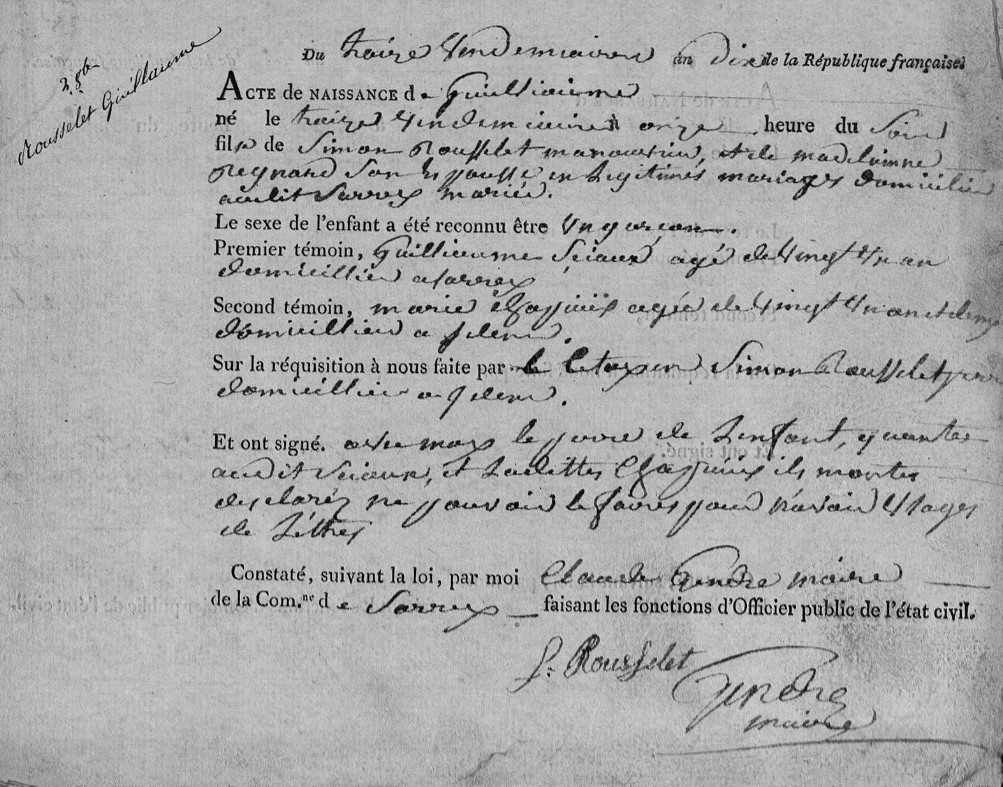 3 8bre
Rousselet Guillaume
Du traize Vendemiaire an Dix de la République française.
ACTE de NAISSANCE de Guilliaume
né le traize Vendemiaire a onze heure du Soir
fils de Simon Rousselet manouvrier, et de madeleinne
Regnard Son Epousse en Legitimes mariages domicilié
audit Sarrey mariée.
Le sexe de l'enfant a été reconnu être Un garçon.
Premier témoin, Guillieaume Sciaux agé de Vingt Un an
domicillier a Sarrey
Second témoin, marie agée de Vingt Un an et demy
domicillier a
Sur la réquisition à nous faite par le Citoyen Simon Rousselet
domicillier a
Et ont signé. avec moy le pere de Lenfant, quante
audit Sciaux, et Laditte ils montes
desclarez ne pouvoir le faires pour navoir Usages
de Lettres
Constaté, suivant la loi, par moi Claude Gendre maire
de la Com.ne de Sarrey faisant les fonctions d'Officier public de l'état civil.
S. Rousselet
Gendre
maire